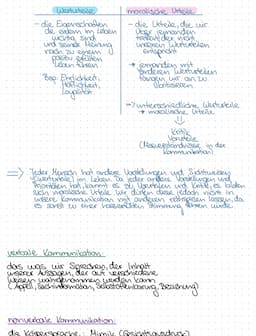 Werturteile
- die Eigenschaften
die jedem im Leben
wichtig sind
und seiner Meinung
nach zu einem
positiv erfüllten
Leben führen
Bsp. Ehrlichkeit,
Höflichkeit,
Loyalität
moralische Urteile
- die Urteile, die wir
über jemanden
treffen, der nicht
unseren Werturteilen
entspricht
→ jemanden mit
anderen Werturteilen
fangen wir an zu
→ unterschiedliche Werturteile
→ moralische Urteile
Kritik
Vorurteile
(Missverständnisse in der
Kommunikation)
⇒ Jeder Mensch hat andere Vorstellungen und
(Werturteile) im Leben. Da jeder andere Vorstellungen und
hat, kommt es zu Vorurteilen und Kritik, es bilden
sich moralische Urteile. Wir dürfen diese jedoch nicht in
unsere Kommunikation mit anderen einfließen lassen, da
es sonst zu einer Stimmung führen würde.
verbale Kommunikation:
das was wir sprechen, der Inhalt
unserer Aussagen, der auf verschiedene
Weisen wahrgenommen werden kann
(Appell, Sachinformation, Selbstoffenbarung, Beziehung)
nonverbale Kommunikation:
die Körpersprache: Mimik (Gesichtsausdruck)